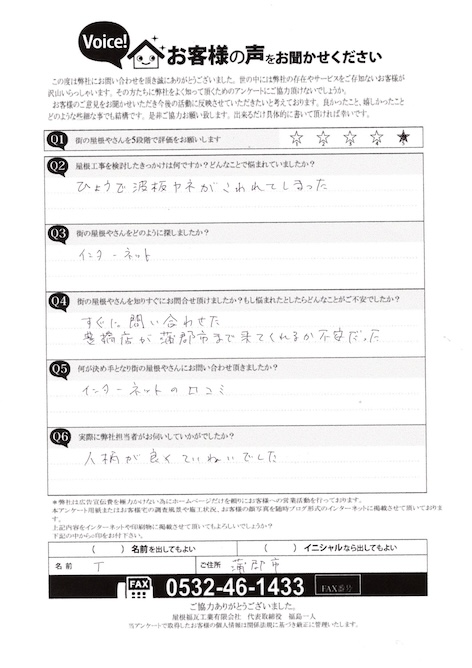 Voice!
お客様の声をお聞かせください
この度は弊社にお問い合わせを頂き誠にありがとうございました。世の中には弊社の存在やサービスをご存知ないお客様が
沢山いらっしゃいます。その方たちに弊社をよく知って頂くためのアンケートにご協力頂けないでしょうか。
お客様のご意見をお聞かせいただき今後の活動に反映させていただきたいと考えております。良かったこと、嬉しかったこと
どのような些細な事でも結構です。是非ご協力お願い致します。出来るだけ具体的に書いて頂ければ幸いです。
Q1 街の屋根やさんを5段階で評価をお願いします ☆ ☆ ☆ ☆ ★
Q2 屋根工事を検討したきっかけは何ですか?どんなことで悩まれていましたか?
ひょうで波板ヤネがされれてしまった
Q3 街の屋根やさんをどのように探しましたか?
インターネット
Q4 街の屋根やさんを知りすぐにお問合せ頂けましたか?もし悩まれたとしたらどんなことがご不安でしたか?
すぐに問い合わせた
豊橋店が蒲郡市まで来てくれるか不安だった
Q5 何が決め手となり街の屋根やさんにお問い合わせ頂きましたか?
インターネットの口コミ
Q6 実際に弊社担当者がお伺いしていかがでしたか?
人柄が良くていねいでした
*弊社は広告宣伝費を極力かけない為にホームページだけを頼りにお客様への営業活動を行っております。
本アンケート用紙またはお客様宅の調査風景や施工状況、お客様の顔写真を随時ブログ形式のインターネットに掲載させて頂いておりま
す。
上記内容をインターネットや印刷物に掲載させて頂いてもよろしいでしょうか?
下記の中から○印をお付下さい。
( ) 名前を出してもよい ( ) イニシャルなら出してもよい
名前 T ご住所 蒲郡市
FAX 0532-46-1433 FAX番号
ご協力ありがとうございました。
屋根福瓦工業有限会社 代表取締役 福島一人
当アンケートで取得したお客様の個人情報は関係法規に基づき厳正に管理いたします。